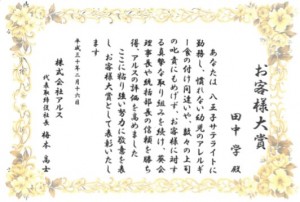 お客様大賞
田中 学 殿
あなたは、八王子サテライトに
勤務し、慣れない幼児のアレルギ
ー食の付け間違いや、数々の上司
の叱責にもめげず、お客様に対す
る真摯な取り組みを続け、葵会
理事長や統括部長の信頼を勝ち
得、アルスの評価を高めました
ここに粘り強い努力に敬意を表
し、お客様大賞として表彰いたし
ます
平成三十年二月十六日
株式会社アルス
代表取締役社長 梅本 高士